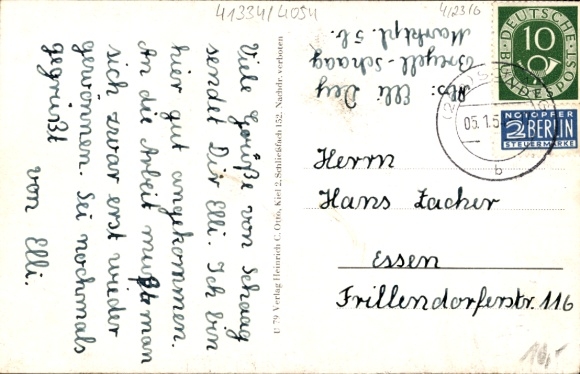 41334/4054
4/23/6
Viele Grüße von Schaag
sendet Dir Elli. Ich bin
hier gut angekommen.
An die Arbeit mußte man
sich zwar erst wieder
gewönnen. Sei nochmals
gegrüßt
von Elli.
U 79 Verlag Heinrich C. Otto, Kiel 2, Schließfach 152. Nachdr. verboten
Abs: Elli Dey
Breyell-Schaag
Marktpl. 5b.
DEUTSCHE
BUNDESPOST
10
NOTOPFER
2 BERLIN
STEUERMARKE
05.1.5
b
Herrn
Hans Zacher
Essen
Frillendorferstr. 116
10,-